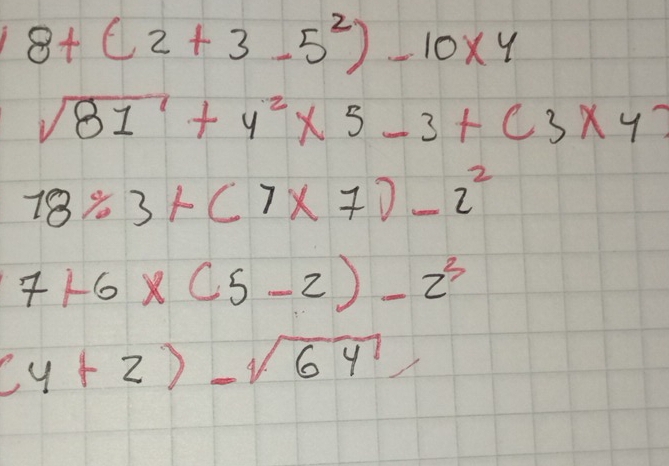 8 + (2 + 3 - 5²) - 10 x 4
√81 + 4² x 5 - 3 + (3 x 4
18 ÷ 3 + (7 x 7) - 2²
7 + 6 x (5 - 2) - 2³
(4 + 2) - √64